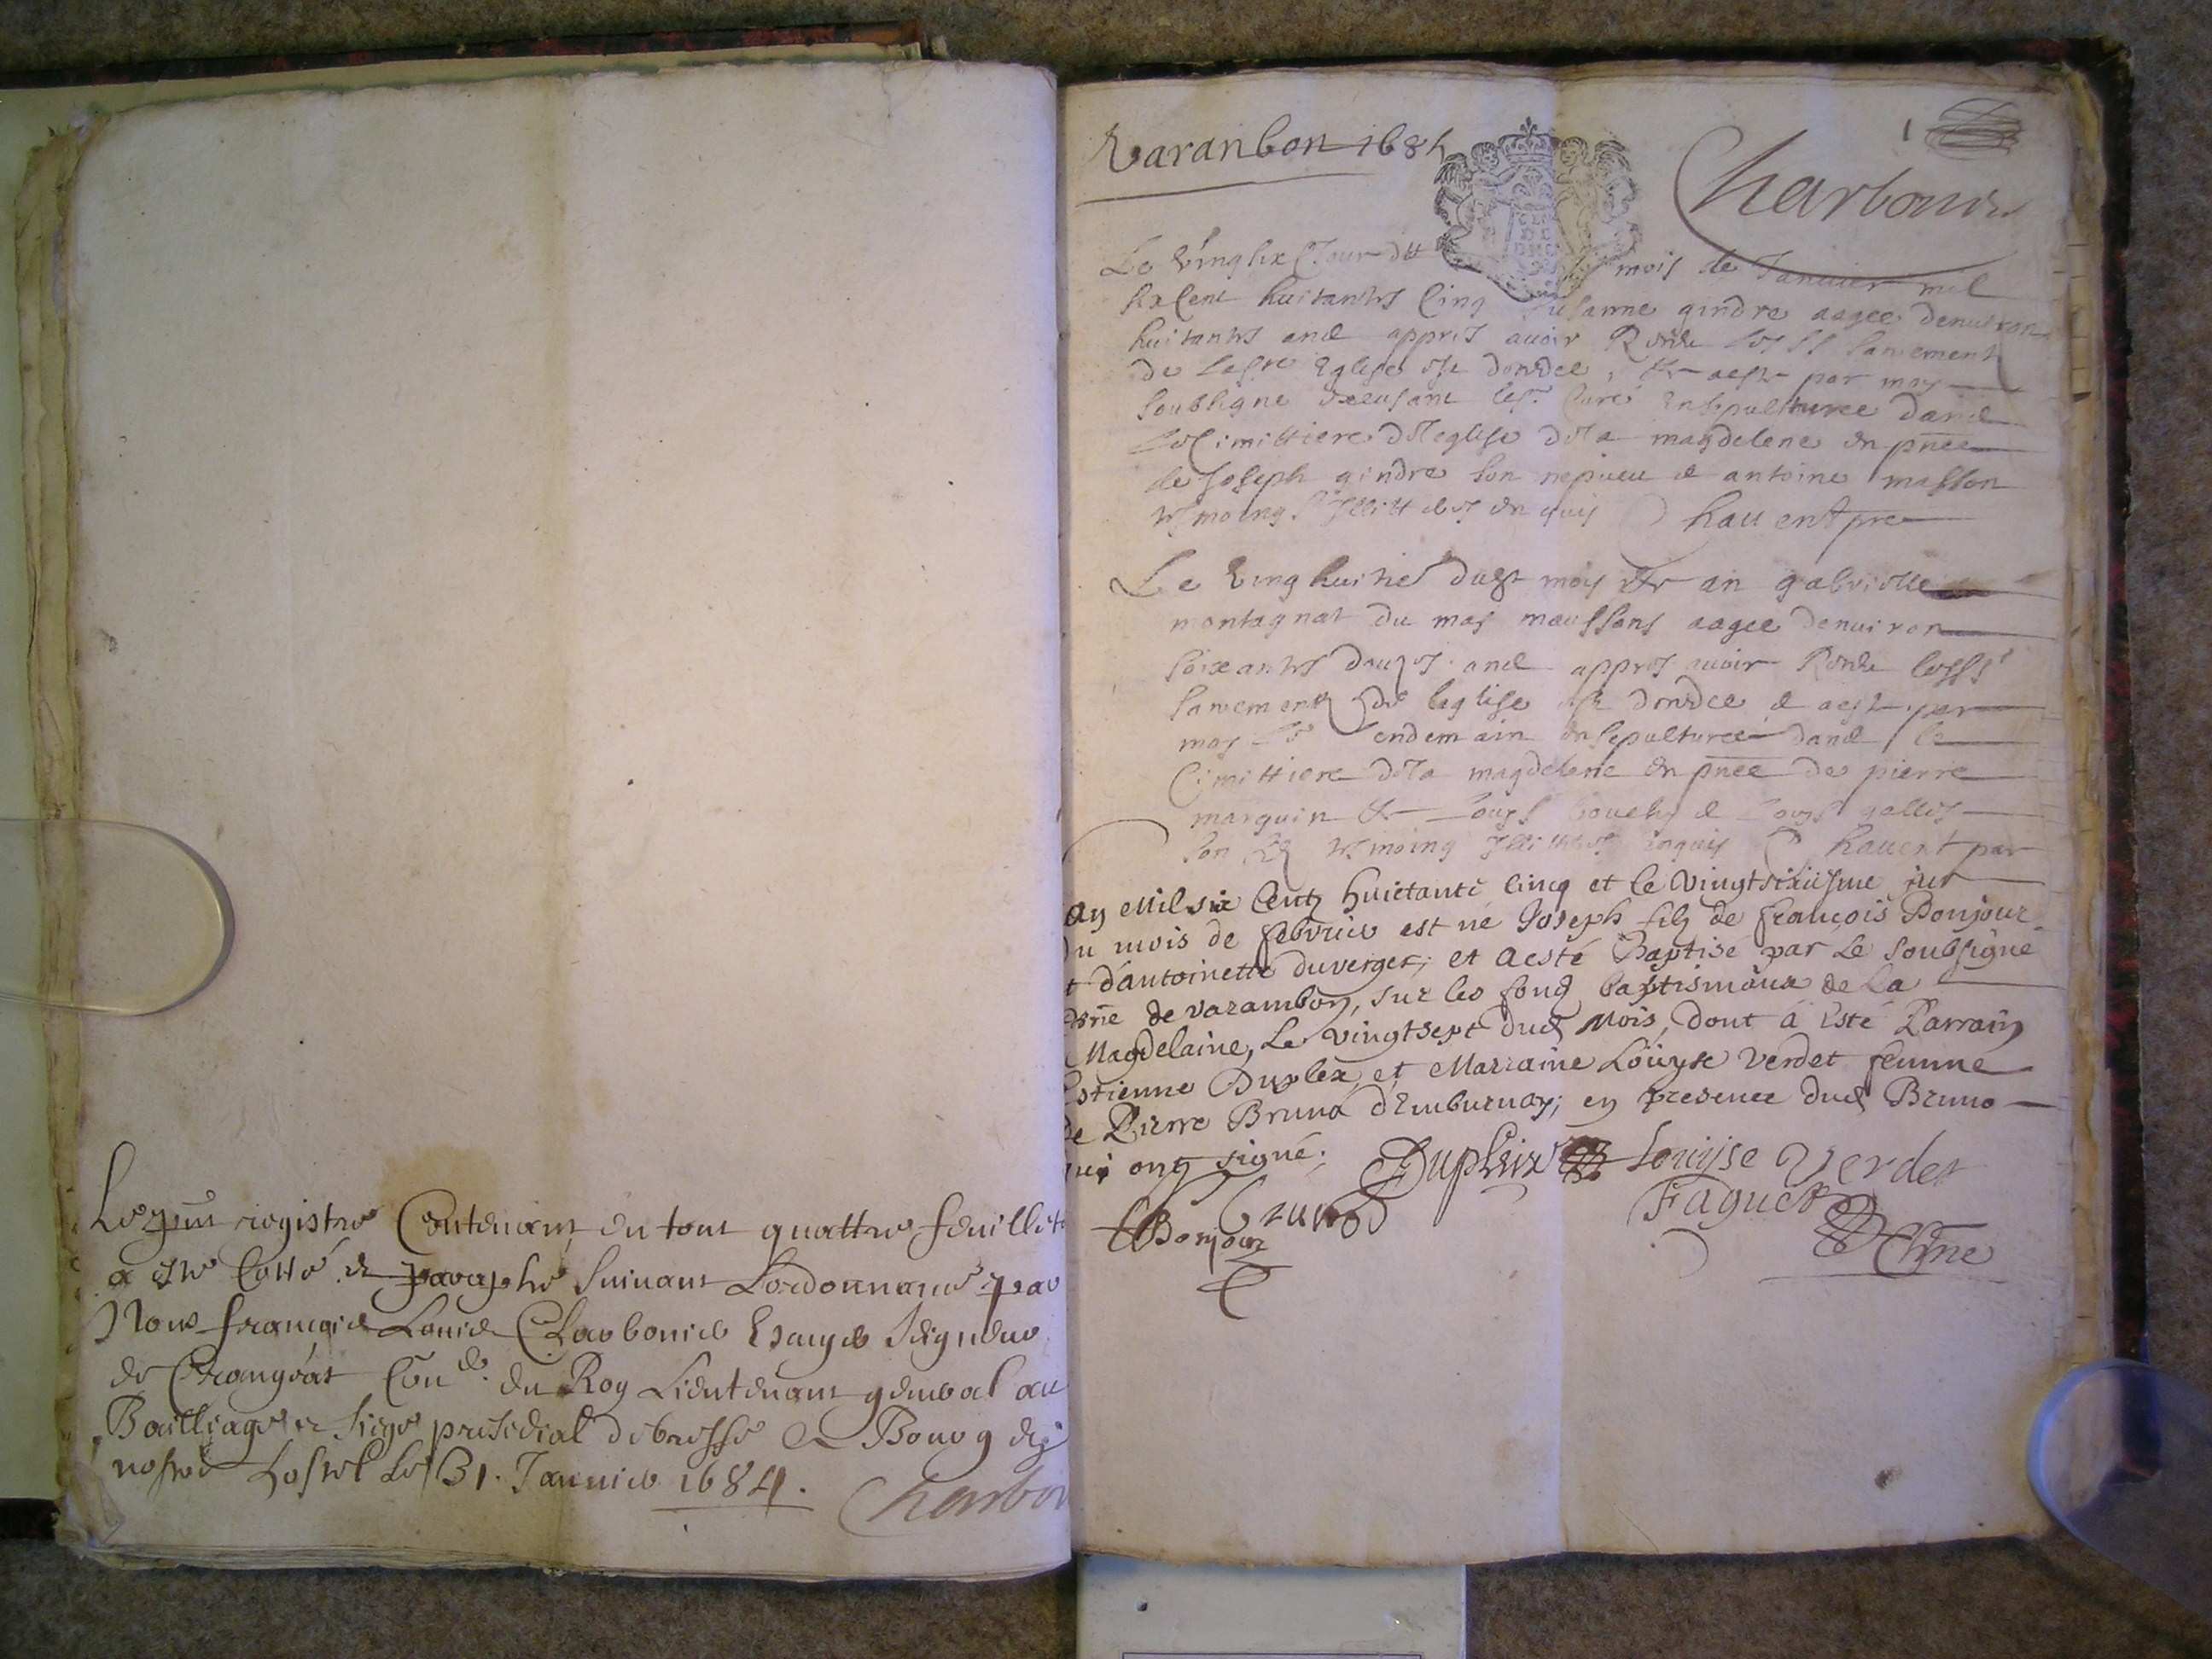 Le pnt registre Contenant en tout quattre feuillets
a este Cotté et paraphé Suivant Lordonnance par
Nous francois Louis Charbonier Escuyer Seigneur
de Crangeat Con.er du Roy Lieutenant general au
Bailliage et siege presidial de bresse a Bourg en
nostre hostel le 31. Januier 1684.
Charbon
Varanbon 1685
1
Charbonier
Le vingsix Jour du mois de Januier mil
six Cent huitantes Cinq Susanne gindre aagee denuiron
huitantes ans appres auoir Rendu les SS sacrements
de leglise est decedee, et aeste par moy
soubsigne sr Curé ensepulturee dans
le Cimittiere de leglise de la magdelene en pnce
de Joseph gindre son nepueu et antoine masson
tesmoings Illitteres enquis
Le vinghuitie dudt moys et an gabrielle
montagnat du mas maussans aagee denuiron
soixantes douzes ans appres auoir Rendu les SS
sacrements de leglise est decedee et aeste par
moy le lendemain ensepulturee dans le
Cimittiere de la magdelene en pnce de pierre
marguin et Louys et Louys
son tesmoings Illitteres enquis
an Mil six Centz huictante cinq et le vingtsixiesme jur
du mois de febvrier est né Joseph filz de françois Bonjour
d'antoinette duverger; et a esté Baptisé par Le soubsigné
de varambon, sur les fond baptismaux de La
Magdelaine, Le vingtsept dud Mois, dont à esté Parrain
Estienne Duplex, et Marraine Loüyse verdet femme
de Pierre Bruno d'Emburnay; en presence dud Bruno
qui ont signé;
Dupleix Louijse Verdet
Bruno Faguet
Bonjour